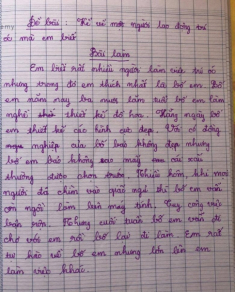 Đề bài: Kể về một người lao động trí
óc mà em biết
Bài làm
Em biết rất nhiều người làm việc trí óc
nhưng trong đó em thích nhất là bố em. Bố
em năm nay ba mươi tuổi bố em làm
nghề thiết kế đồ họa. Hàng ngày bố
em thiết kế các hình đẹp. Với cô đồng
nghiệp của bố bảo không đẹp nhưng
bố em bảo không sao
thường được phen trước. Nhiều hôm khi mọi
người đã chìm vào giấc ngủ thì bố em vẫn
còn ngồi làm bên máy tính. Tuy công việc
bận rộn. Nhưng cuối tuần bố em vẫn đi
chơi với em rồi bố lại đi làm. Em rất
tự hào về bố em nhưng lớn lên em
làm việc khác.